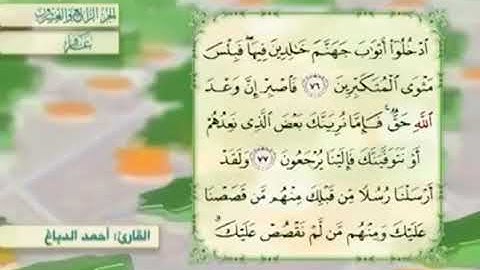 الجزء الرابع والعشرون
غافر
ٱدْخُلُوٓا۟ أَبْوَٰبَ جَهَنَّمَ خَٰلِدِينَ فِيهَا ۖ فَبِئْسَ
مَثْوَى ٱلْمُتَكَبِّرِينَ ﴿٧٦﴾ فَٱصْبِرْ إِنَّ وَعْدَ
ٱللَّهِ حَقٌّ ۚ فَإِمَّا نُرِيَنَّكَ بَعْضَ ٱلَّذِى نَعِدُهُمْ
أَوْ نَتَوَفَّيَنَّكَ فَإِلَيْنَا يُرْجَعُونَ ﴿٧٧﴾ وَلَقَدْ
أَرْسَلْنَا رُسُلًا مِّن قَبْلِكَ مِنْهُم مَّن قَصَصْنَا
عَلَيْكَ وَمِنْهُم مَّن لَّمْ نَقْصُصْ عَلَيْكَ ۗ
القارئ: أحمد الدباغ